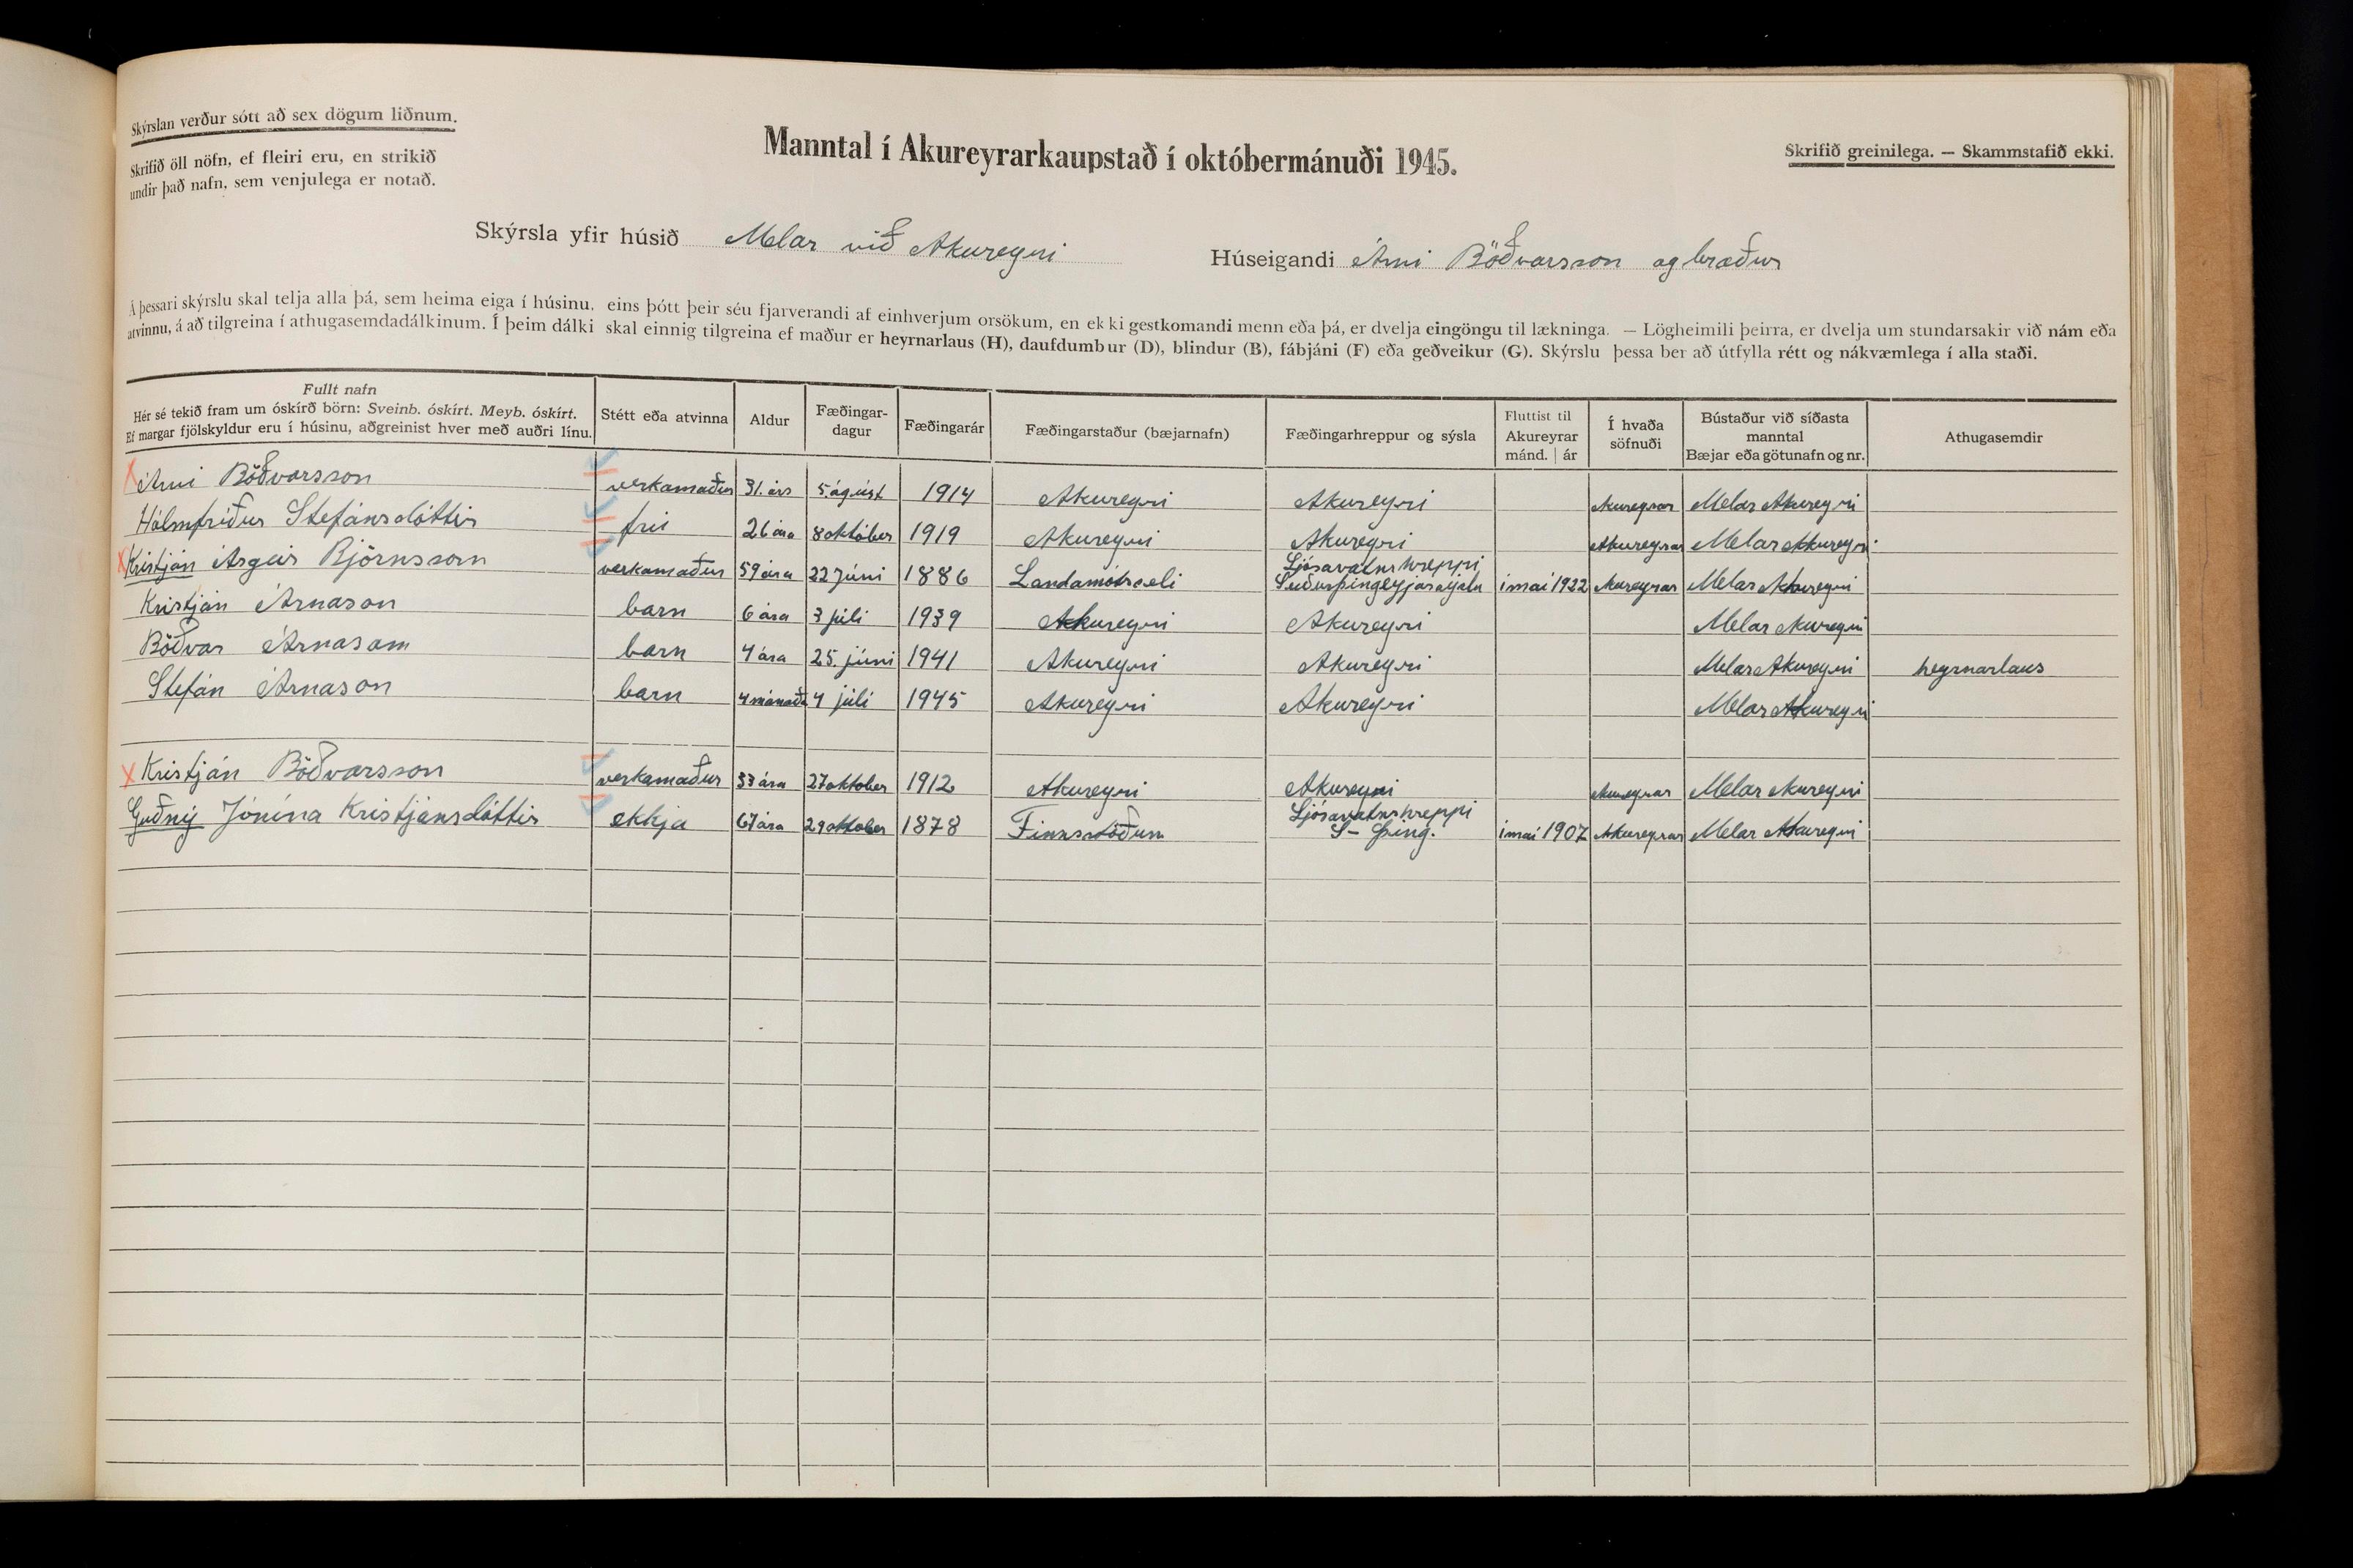 Skýrslan verður sótt að sex dögum liðnum.
Skrifið öll nöfn, ef fleiri eru, en strikið
undir það nafn, sem venjulega er notað.
Manntal í Akureyrarkaupstað í októbermánuði 1945.
Skrifið greinilega. — Skammstafið ekki.
Skýrsla yfir húsið Melar við Akureyri
Húseigandi Árni Böðvarsson og bræður
Á þessari skýrslu skal telja alla þá, sem heima eiga í húsinu, eins þótt þeir séu fjarverandi af einhverjum orsökum, en ekki gestkomandi menn eða þá, er dvelja eingöngu til lækninga. — Lögheimili þeirra, er dvelja um stundarsakir við nám eða
atvinnu, á að tilgreina í athugasemdadálkinum. Í þeim dálki skal einnig tilgreina ef maður er heyrnarlaus (H), daufdumbur (D), blindur (B), fábjáni (F) eða geðveikur (G). Skýrslu þessa ber að útfylla rétt og nákvæmlega í alla staði.
Fullt nafn
Hér sé tekið fram um óskírð börn: Sveinb. óskírt. Meyb. óskírt.
Ef margar fjölskyldur eru í húsinu, aðgreinist hver með auðri línu.
Stétt eða atvinna
Aldur
Fæðingar-
dagur
Fæðingarár
Fæðingarstaður (bæjarnafn)
Fæðingarhreppur og sýsla
Fluttist til
Akureyrar
mánd. | ár
Í hvaða
söfnuði
Bústaður við síðasta
manntal
Bæjar eða götunafn og nr.
Athugasemdir
x Árni Böðvarsson verkamaður 31. árs 5. ágúst 1914 Akureyri Akureyri Akureyrar Melar Akureyri
Hólmfríður Stefánsdóttir frú 26 ára 8 október 1919 Akureyri Akureyri Akureyrar Melar Akureyri
x Kristján Ásgeir Björnsson verkamaður 59 ára 22 júni 1886 Landamótsseli Ljósavatnshreppi Suðurþingeyjarsýslu í maí 1922 Akureyrar Melar Akureyri
Kristján Árnason barn 6 ára 3 júli 1939 Akureyri Akureyri Melar Akureyri
Böðvar Árnason barn 4 ára 25. júni 1941 Akureyri Akureyri Melar Akureyri heyrnarlaus
Stefán Árnason barn 4 mánaða 4 júlí 1945 Akureyri Akureyri Melar Akureyri
x Kristján Böðvarsson verkamaður 33 ára 27 oktober 1912 Akureyri Akureyri Akureyrar Melar Akureyri
Guðný Jónína Kristjánsdóttir ekkja 67 ára 29 oktober 1878 Finnsstöðum Ljósavatnshreppi S-Þing. í maí 1907 Akureyrar Melar Akureyri